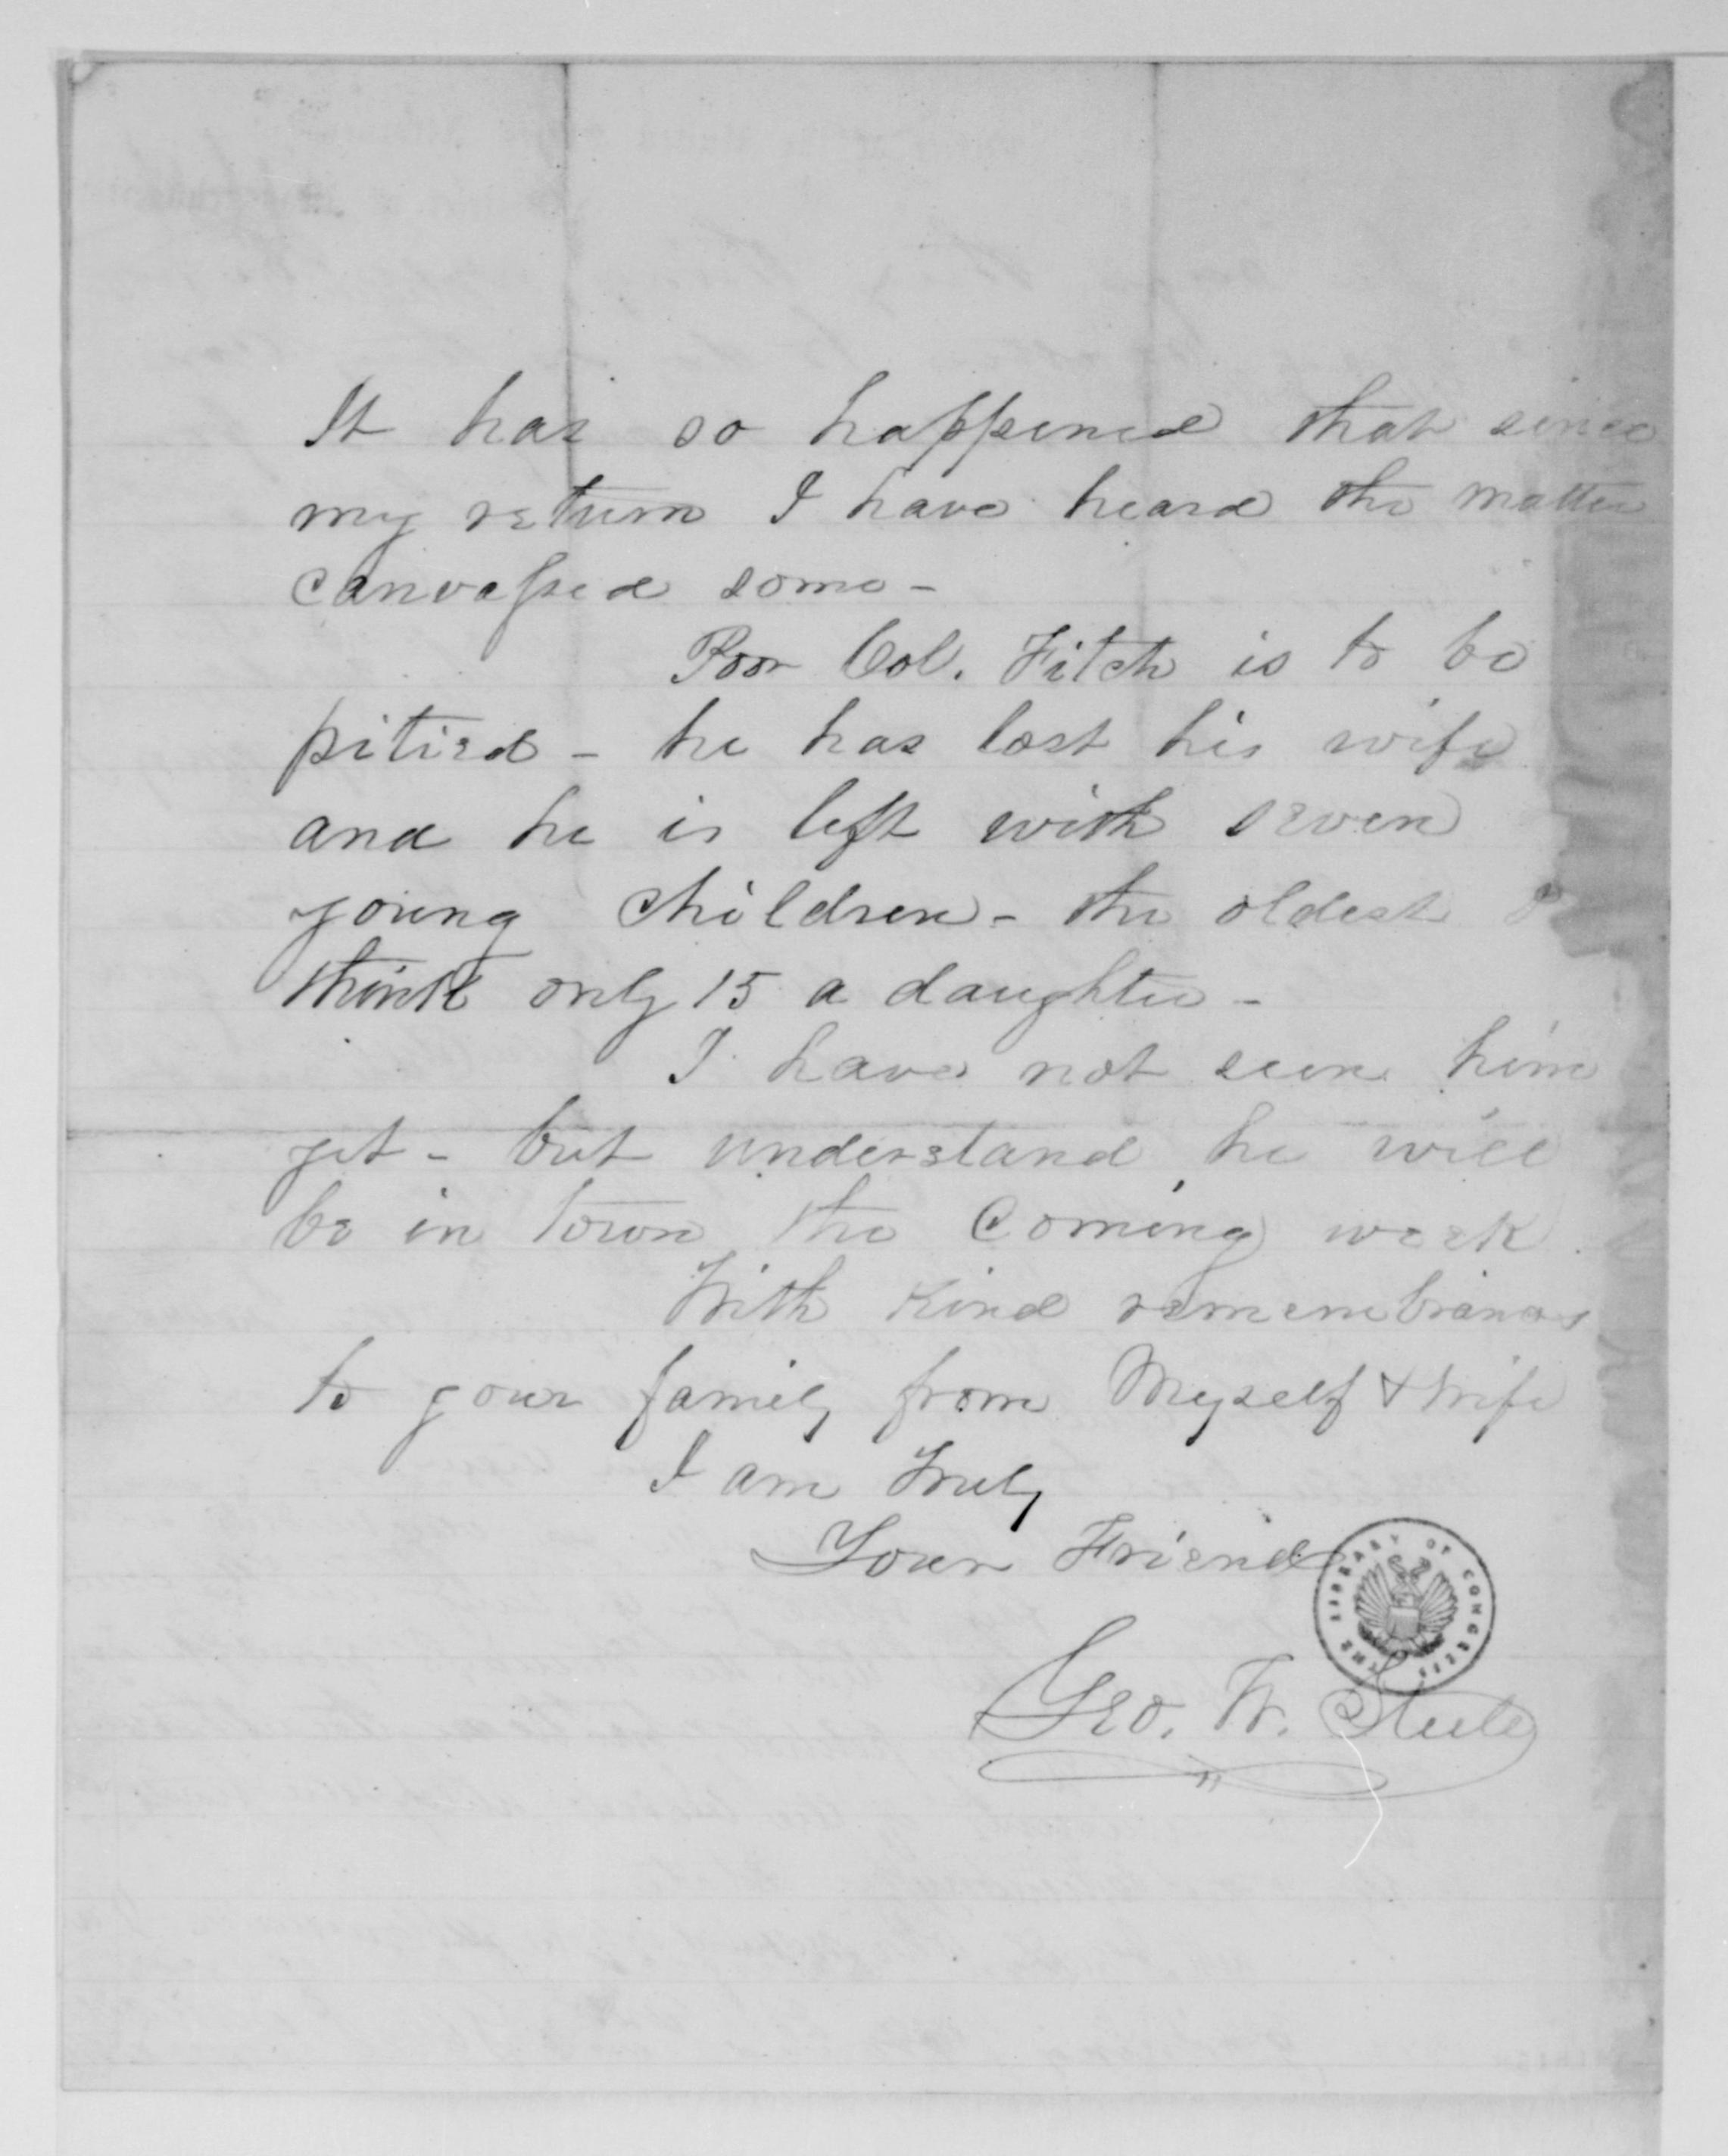 It has so happened that since
my return I have heard the matter
canvassed some -
Poor Col. Fitch is to be
pitied - he has lost his wife
and he is left with seven
young children - the oldest I
think only 15 a daughter -
I have not seen him
yet - but understand he will
be in town the coming week.
With kind remembrances
to your family from Myself & Wife
I am Truly
Your Friend
THE LIBRARY OF CONGRESS
Geo. W. Steele